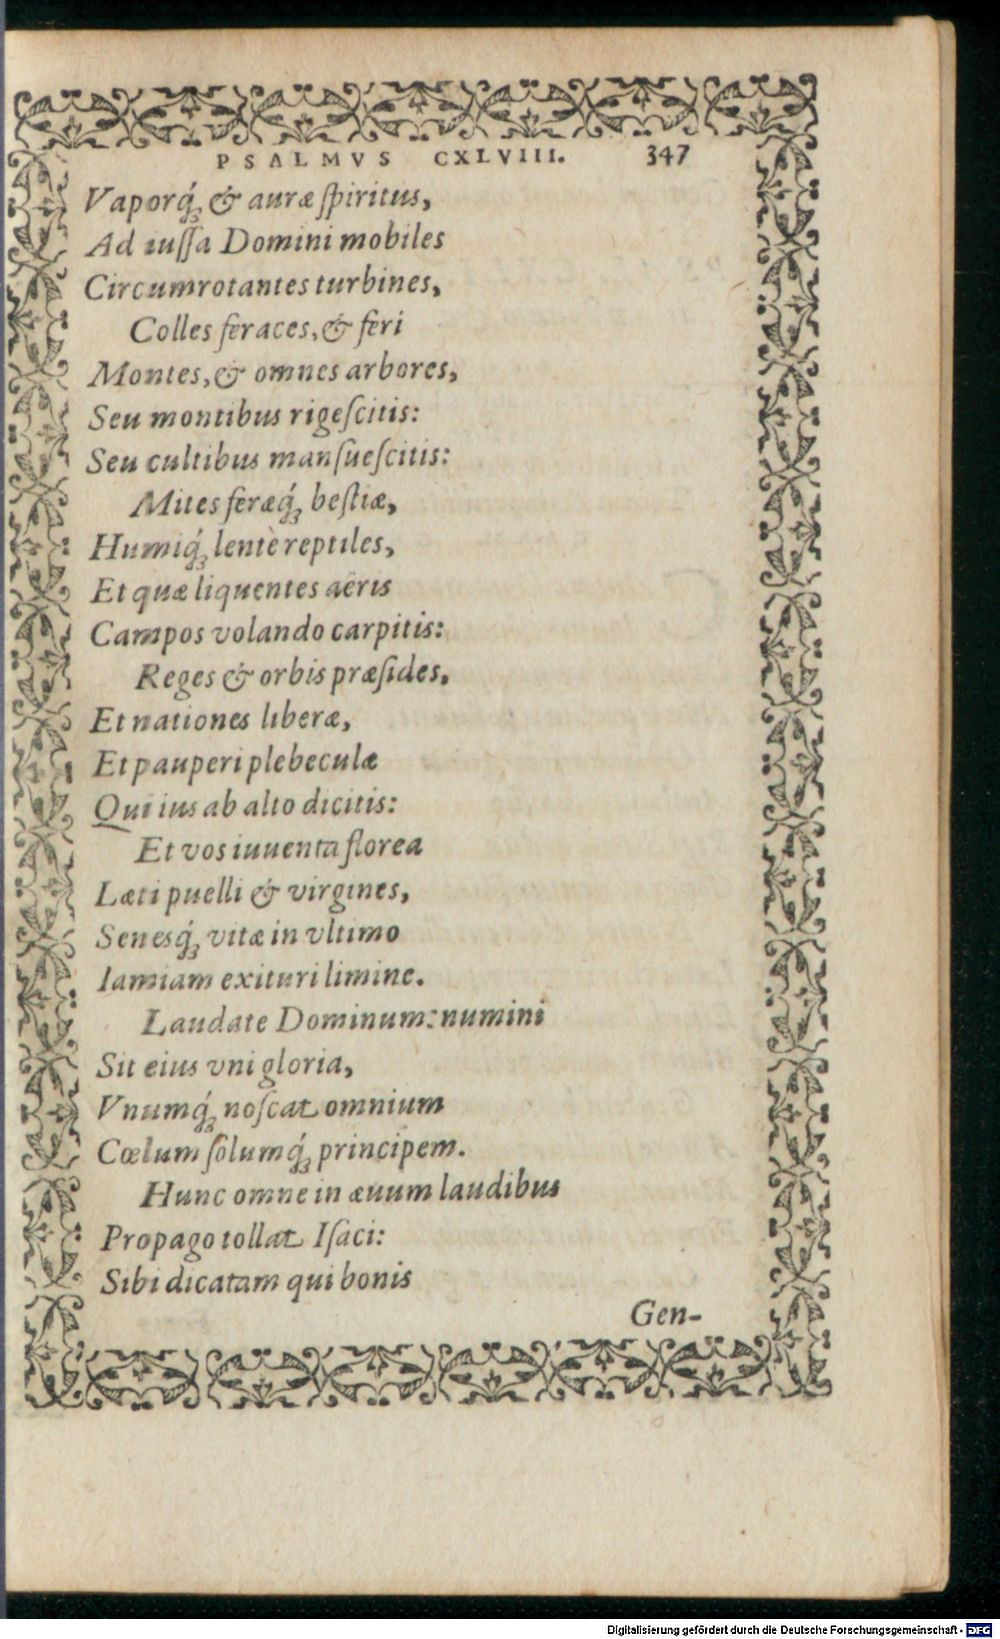 PSALMVS CXLVIII. 347
Vaporq́; & auræ ſpiritus,
Ad iuſſa Domini mobiles
Circumrotantes turbines,
Colles feraces, & feri
Montes, & omnes arbores,
Seu montibus rigeſcitis:
Seu cultibus manſueſcitis:
Mites feræq́; beſtiæ,
Humiq́; lentè reptiles,
Et quæ liquentes aëris
Campos volando carpitis:
Reges & orbis præſides,
Et nationes liberæ,
Et pauperi plebeculæ
Qui ius ab alto dicitis:
Et vos iuuenta florea
Læti puelli & virgines,
Senesq́; vitæ in vltimo
Iamiam exituri limine.
Laudate Dominum: numini
Sit eius vni gloria,
Vnumq́; noſcat omnium
Cœlum ſolumq́; principem.
Hunc omne in æuum laudibus
Propago tollat Iſaci:
Sibi dicatam qui bonis
Gen-
Digitalisierung gefördert durch die Deutsche Forschungsgemeinschaft - DFG